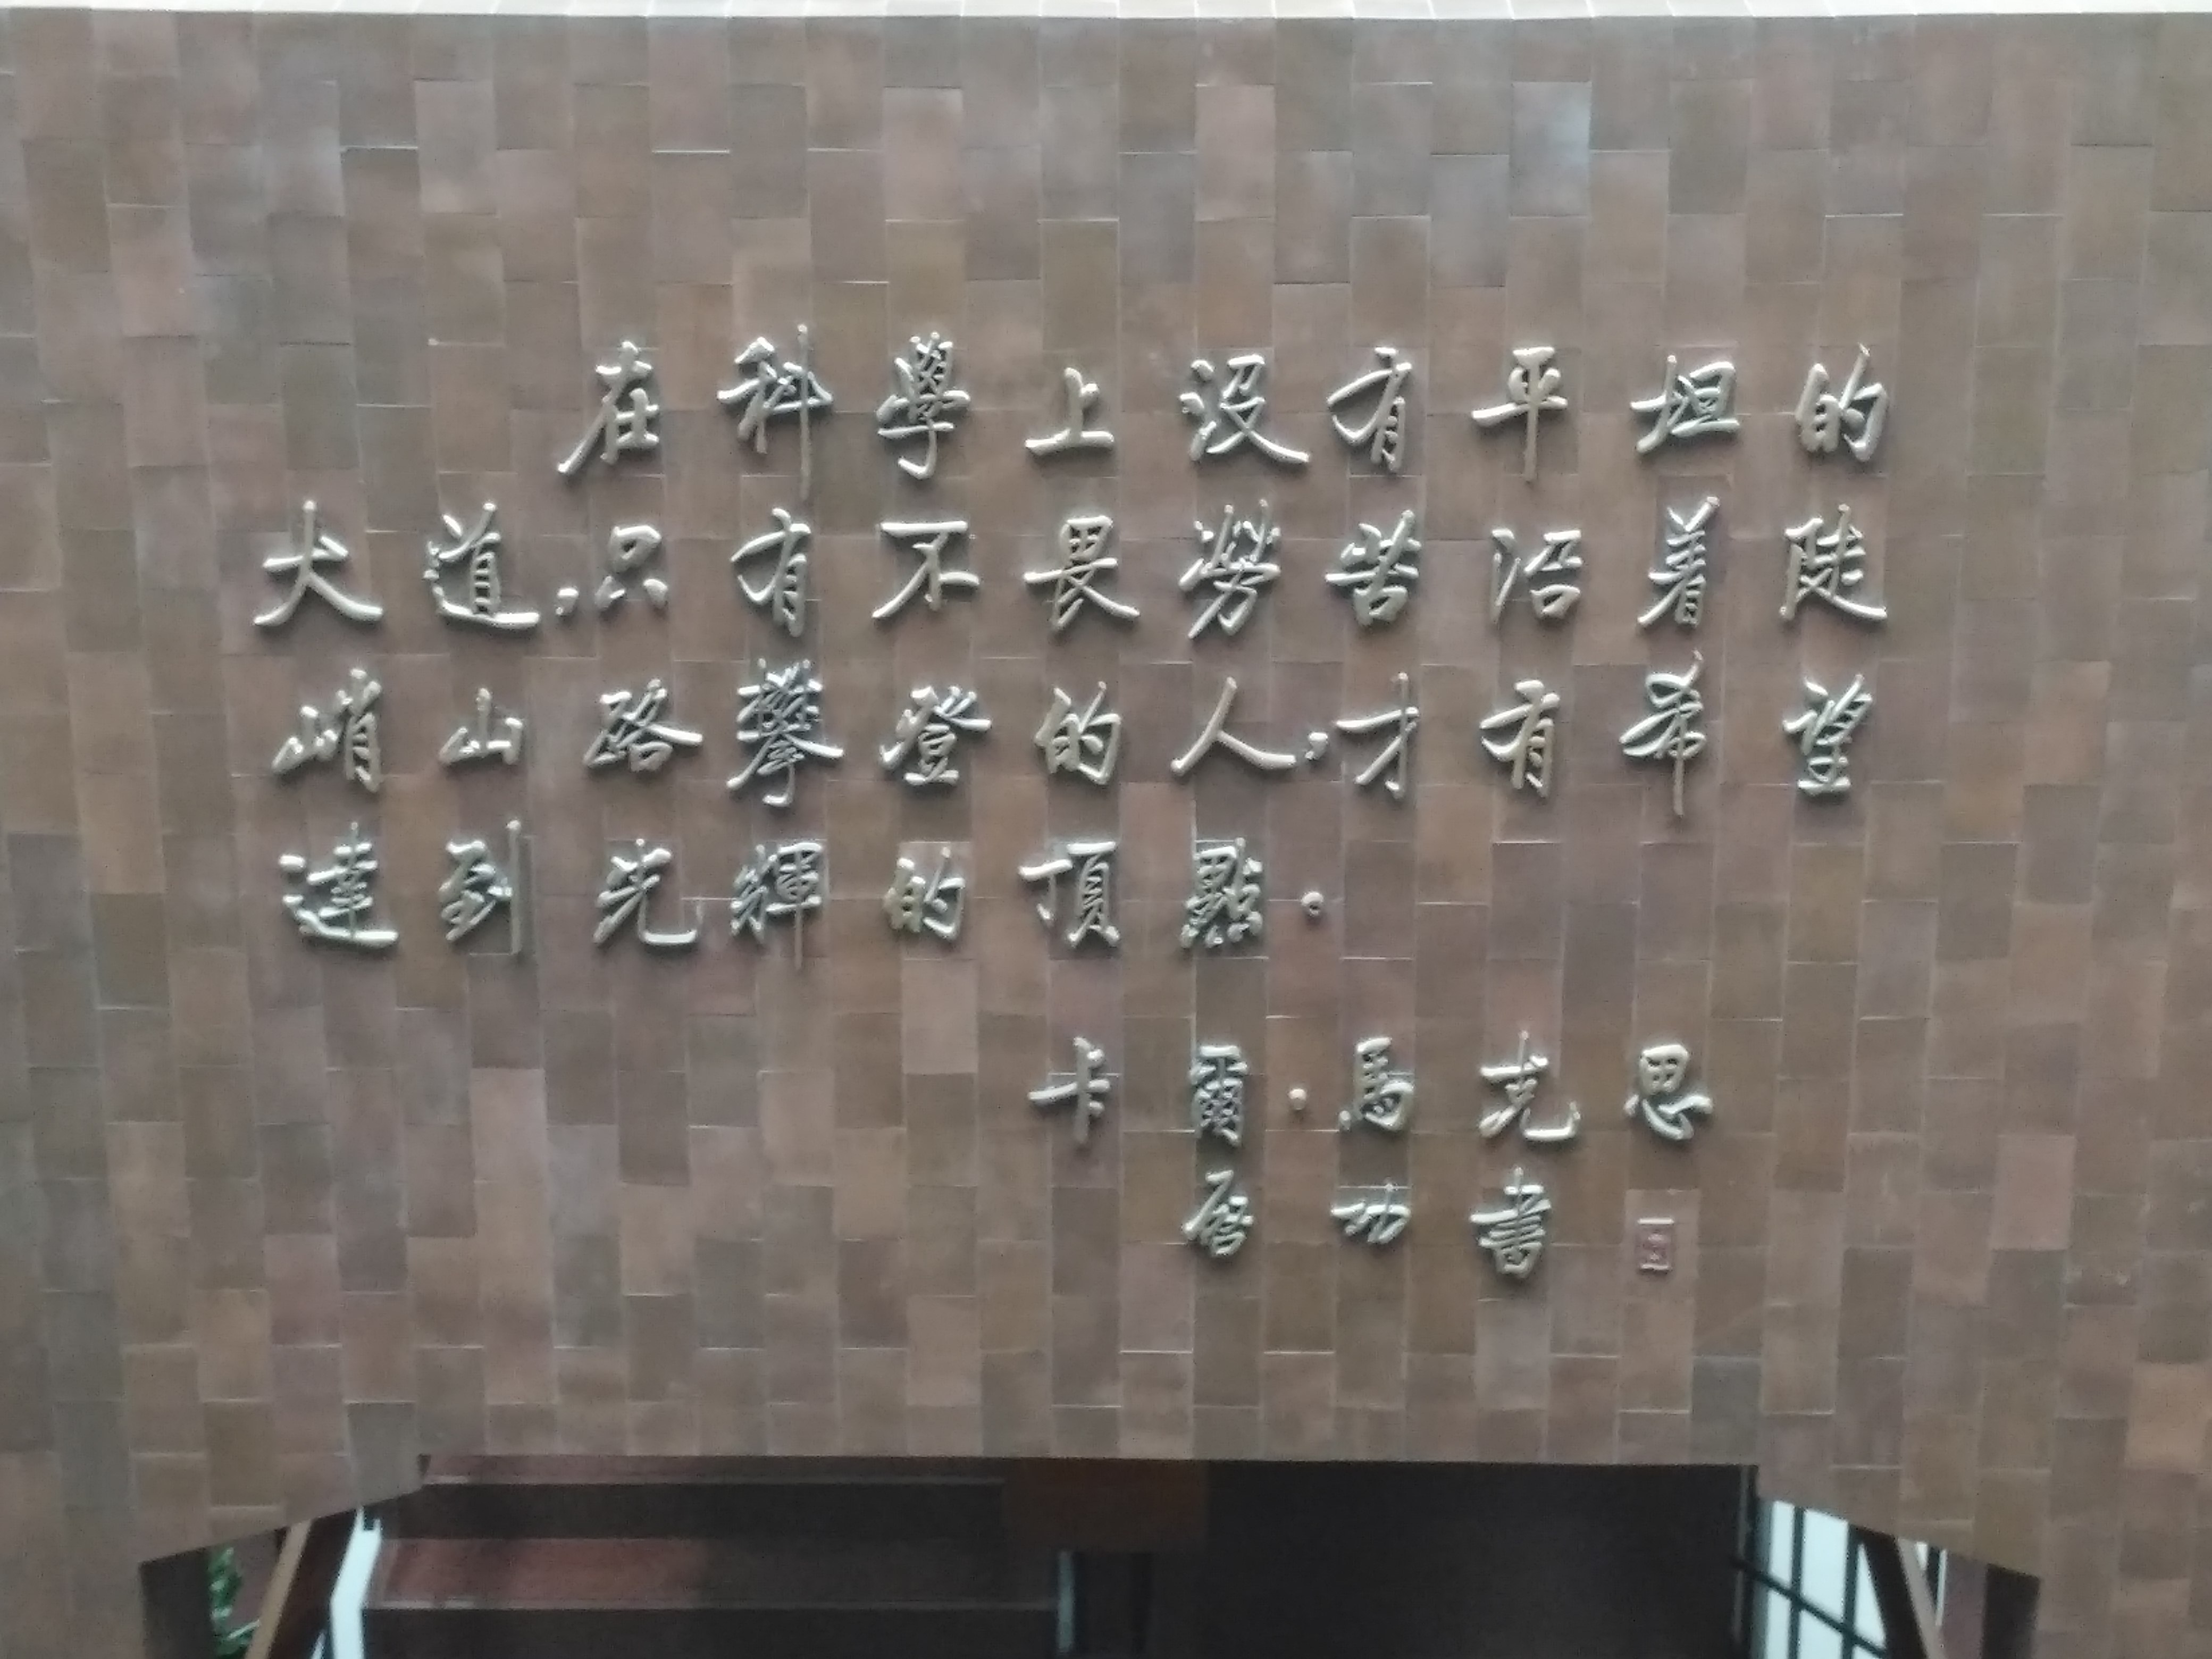 在科學上没有平坦的
大道,只有不畏勞苦沿着陡
峭山路攀登的人,才有希望
達到光輝的頂點。
卡爾·馬克思
启功書